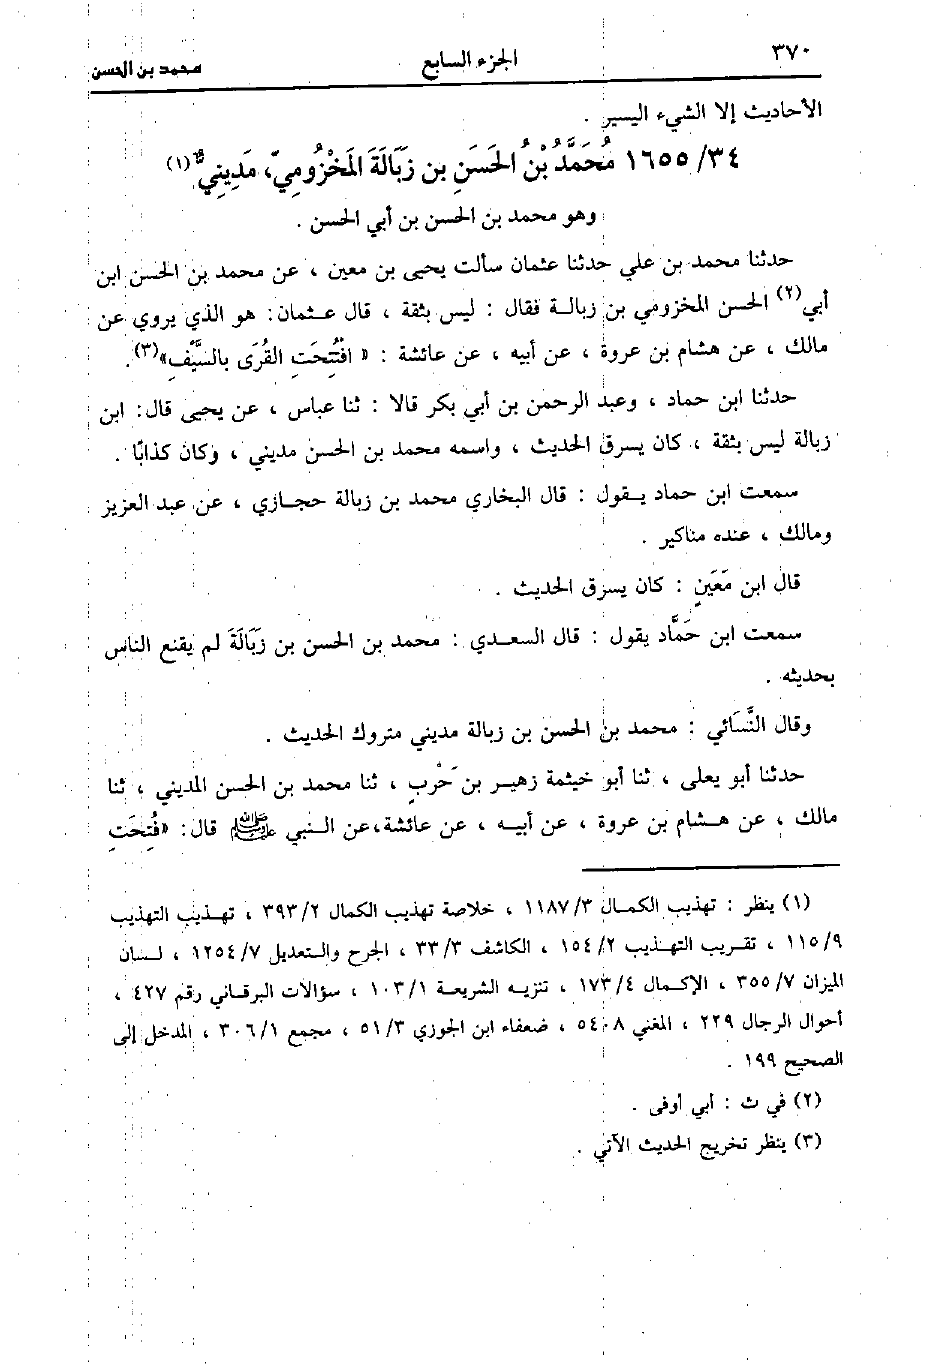 ٣٧٠ الجزء السابع محمد بن الحسن
الأحاديث إلا الشيء اليسير .
١٦٥٥/٣٤ مُحَمَّدُ بْنُ الحَسَنِ بن زَبَالَةَ المَخْزُومِيّ، مَدِينِيٌّ(١)
وهو محمد بن الحسن بن أبي الحسن .
حدثنا محمد بن علي حدثنا عثمان سألت يحيى بن معين ، عن محمد بن الحسن ابن
أبي(٢) الحسن المخزومي بن زبالة فقال : ليس بثقة ، قال عثمان: هو الذي يروي عن
مالك ، عن هشام بن عروة ، عن أبيه ، عن عائشة : « افْتُتِحَتِ القُرَى بالسَّيْفِ»(٣).
حدثنا ابن حماد ، وعبد الرحمن بن أبي بكر قالا : ثنا عباس ، عن يحيى قال: ابن
زبالة ليس بثقة ، كان يسرق الحديث ، واسمه محمد بن الحسن مديني ، وكان كذابًا .
سمعت ابن حماد يقول : قال البخاري محمد بن زبالة حجازي ، عن عبد العزيز
ومالك ، عنده مناكير .
قال ابن مَعَينٍ : كان يسرق الحديث .
سمعت ابن حَمَّاد يقول : قال السعدي : محمد بن الحسن بن زَبَالَةَ لم يقنع الناس
بحديثه .
وقال النَّسَائي : محمد بن الحسن بن زبالة مديني متروك الحديث .
حدثنا أبو يعلى ، ثنا أبو خيثمة زهير بن حَرْبٍ ، ثنا محمد بن الحسن المديني ، ثنا
مالك ، عن هشام بن عروة ، عن أبيه ، عن عائشة،عن النبي ﷺ قال: «فُتِحَت
(١) ينظر : تهذيب الكمال ١١٨٧/٣ ، خلاصة تهذيب الكمال ٣٩٣/٢ ، تهذيب التهذيب
١١٥/٩ ، تقريب التهذيب ١٥٤/٢ ، الكاشف ٣٣/٣ ، الجرح والتعديل ١٢٥٤/٧ ، لسان
الميزان ٣٥٥/٧ ، الإكمال ١٧٣/٤ ، تنزيه الشريعة ١٠٣/١ ، سؤالات البرقاني رقم ٤٢٧ ،
أحوال الرجال ٢٢٩ ، المغني ٥٤٠٨ ، ضعفاء ابن الجوزي ٥١/٣ ، مجمع ٣٠٦/١ ، المدخل إلى
الصحيح ١٩٩ .
(٢) في ث : أبي أوفى .
(٣) ينظر تخريج الحديث الآتي .